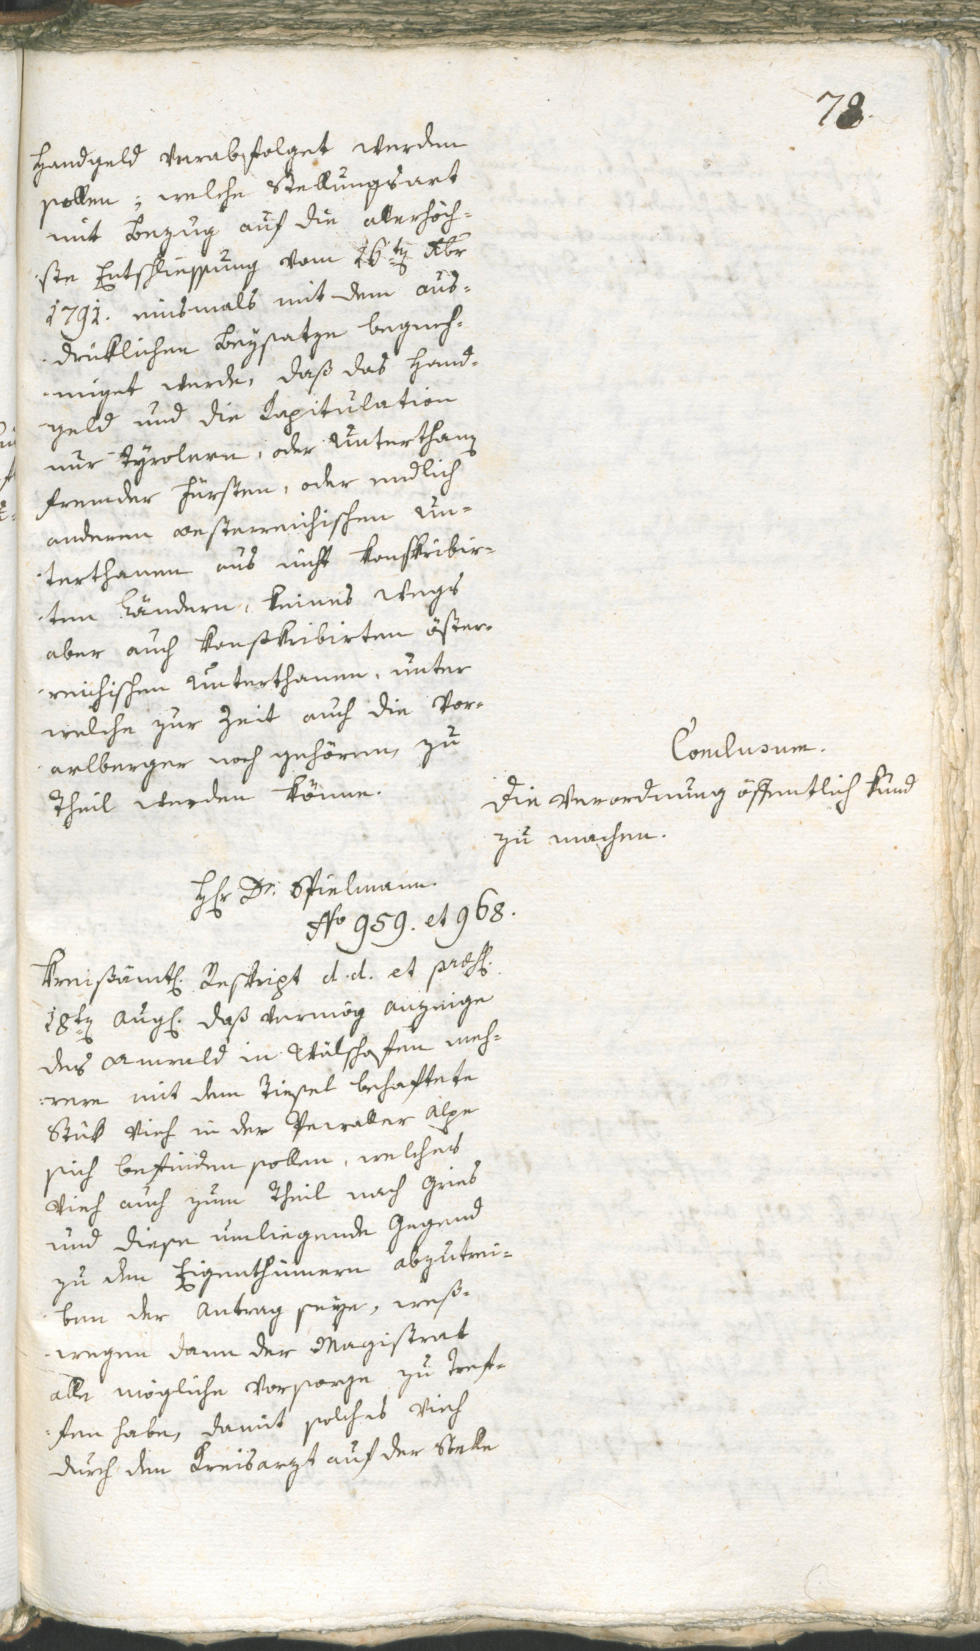 78.
Handgeld verabfolget werden
sollen; welche Stellungsart
mit Bezug auf die allerhöch-
ste Entschliessung vom 16ten Xbr
1791. einsmals mit dem aus-
drüklichen Beysatze begneh-
miget werde, daß das Hand-
geld und die Capitulation
nur Tyrolern, oder Unterthanen
fremder Fürsten, oder endlich
anderen oesterreichischen Un-
terthanen aus nicht konskribir-
ten Ländern, keines wegs
aber auch konskribirten öster-
reichischen Unterthanen, unter
welche zur Zeit auch die Vor-
arlberger noch gehören, zu
Theil werden könne.
Conclusum.
Die Verordnung öffentlich kund
zu machen.
Hr Dr. Spielmann.
No 959. et 968.
Kreisämtl. Reskript d. d. et præs.
18ten Aug. daß vermög Anzeige
des Anwald in Wälschofen meh-
rere mit dem Tiesel behaftete
Stük Vieh in der Alpe
sich befinden sollen, welches
Vieh auch zum Theil nach Gries
und diese umliegende Gegend
zu den Eigenthümern abzutrei-
ben der Antrag seye, weß-
wegen dann der Magistrat
alle mögliche Vorsorge zu tref-
fen habe, damit solches Vieh
durch den Kreisarzt auf der Stelle